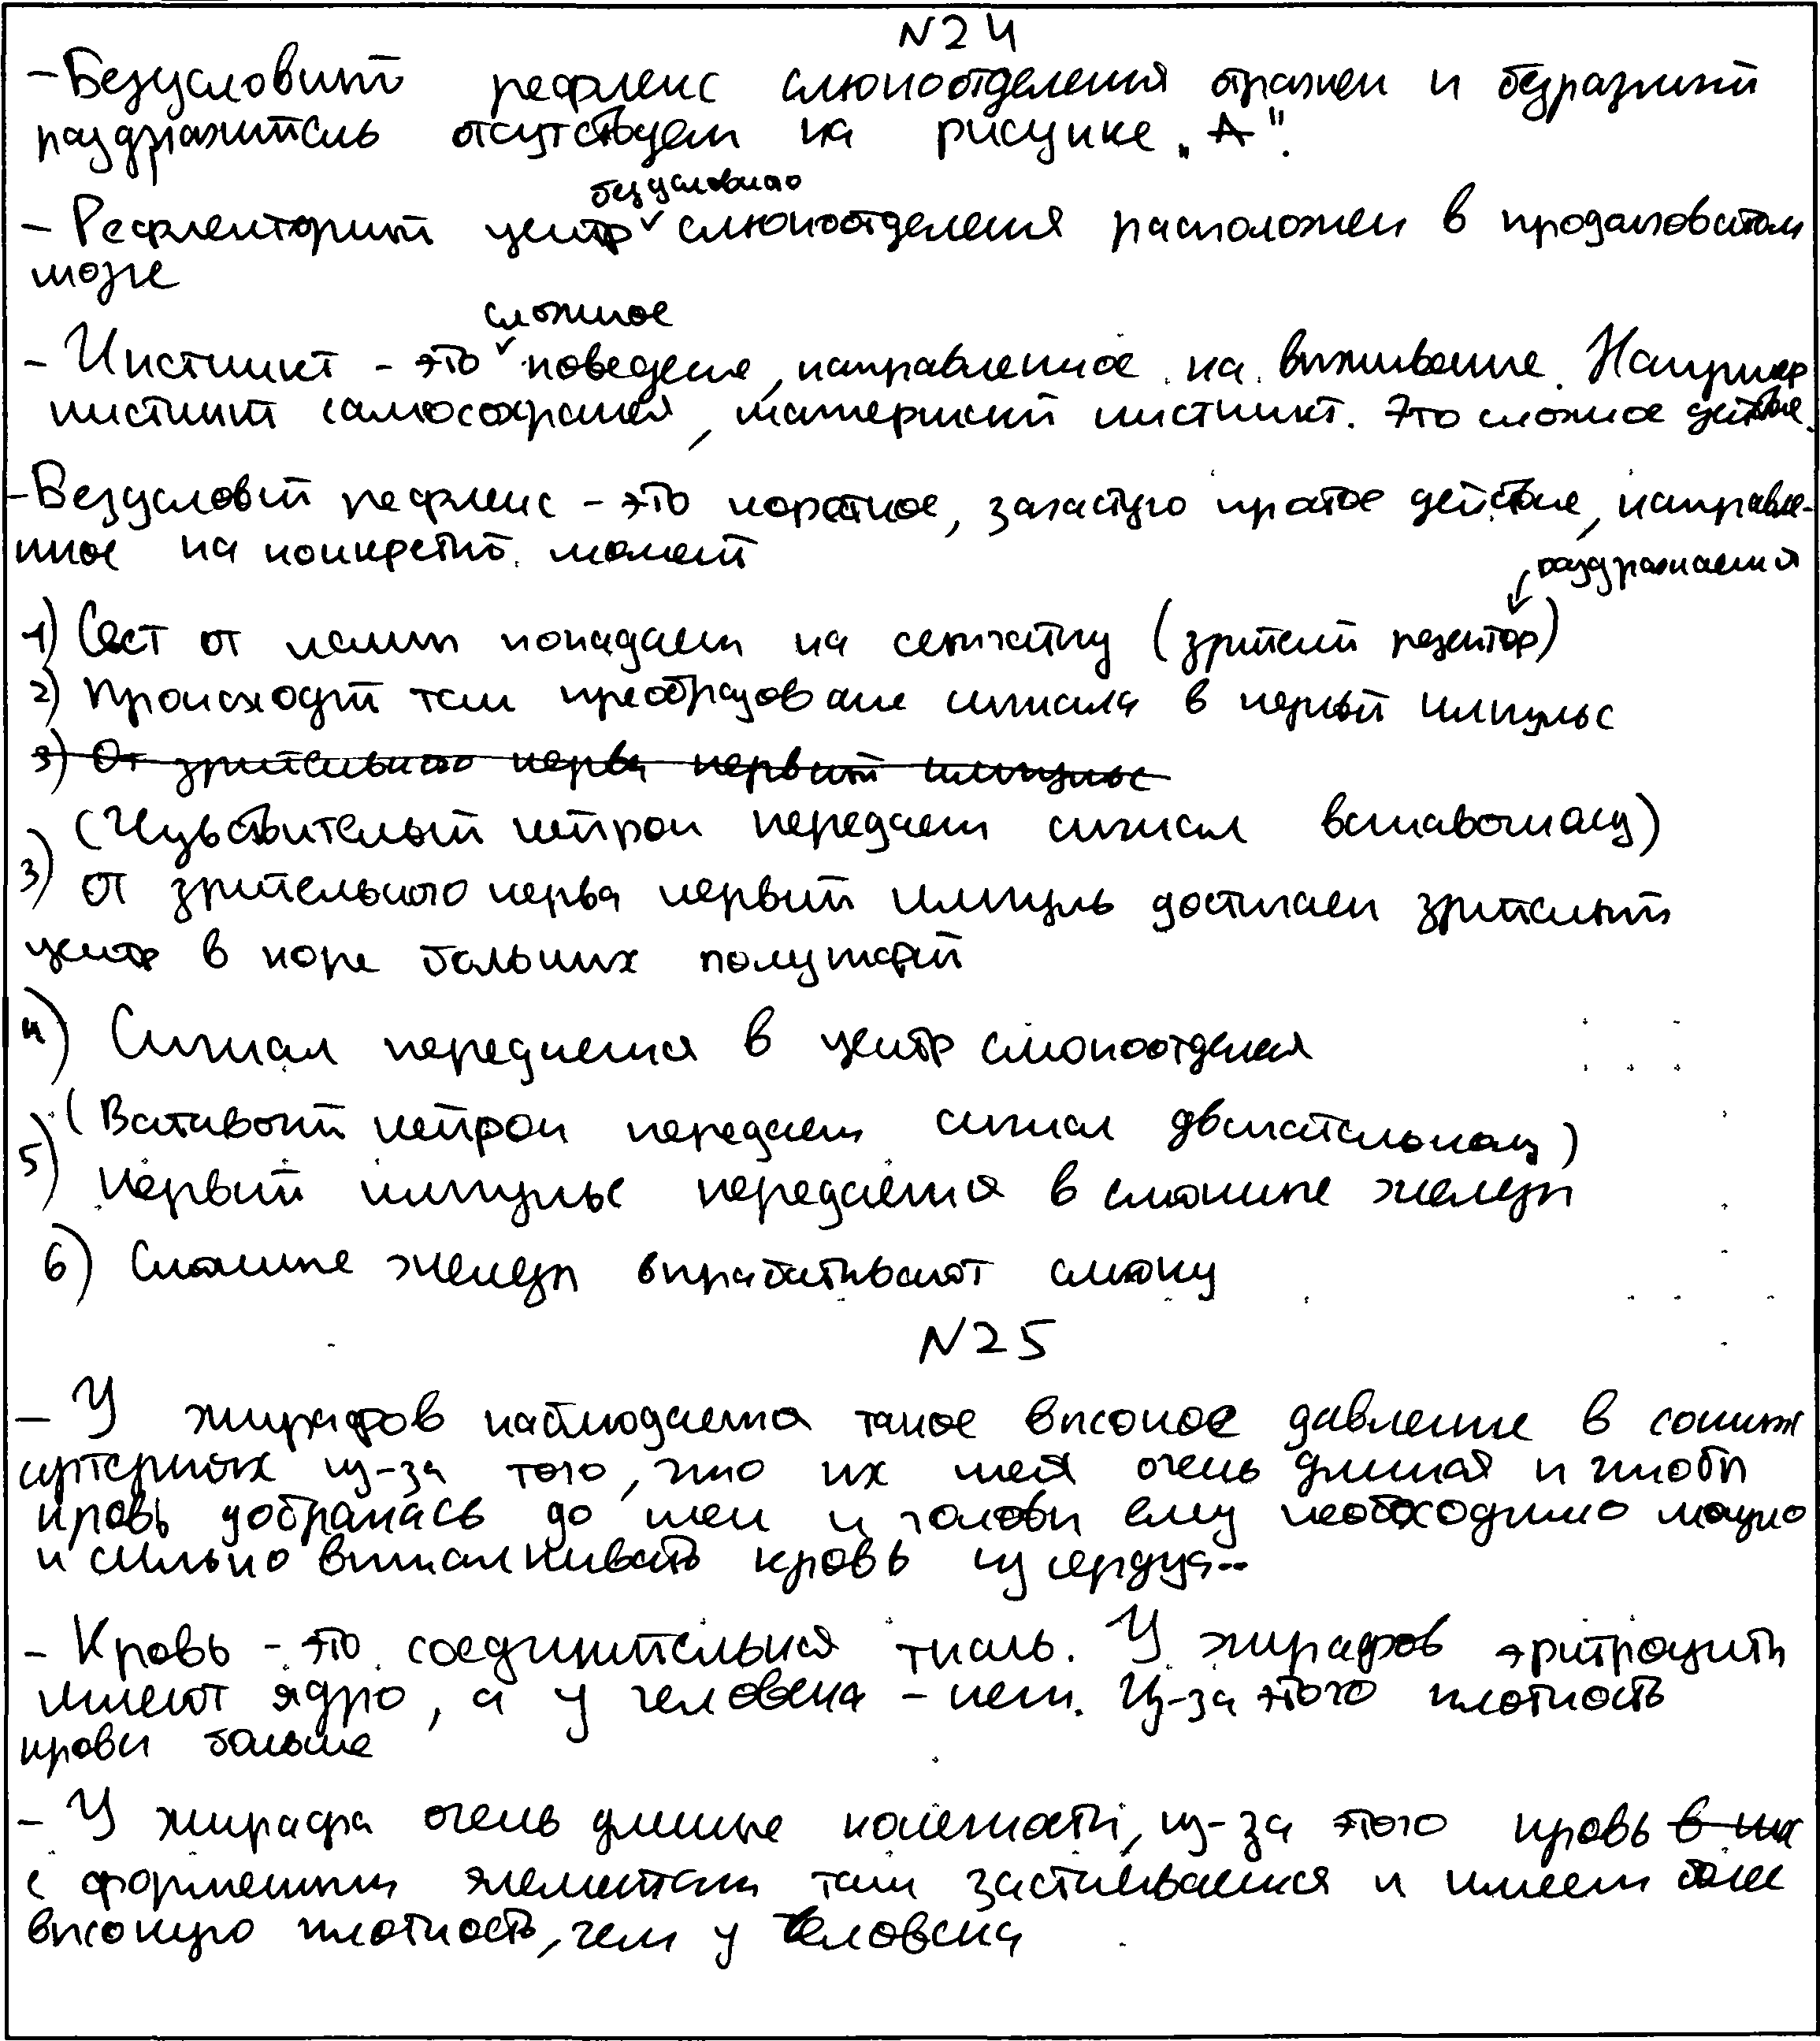 N24
- Безусловный рефлекс слюноотделения отражен и безразличный
раздражитель отсутствует на рисунке „А".
безусловного
- Рефлекторный центр ✓ слюноотделения расположен в продолговатом
мозге
сложное
- Инстинкт - это ✓ поведение, направленное на выживание. Например
инстинкт самосохранения, материнский инстинкт. Это сложное действие.
- Безусловный рефлекс - это короткое, зачастую простое действие, направле-
нное на конкретный момент
раздражения
1) Свет от лампы попадает на сетчатку (зрительный рецептор)
2) Происходит там преобразование сигнала в нервный импульс
3) От зрительного нерва нервный импульс
(Чувствительный нейрон передает сигнал вставочному)
3) От зрительного нерва нервный импульс достигает зрительный
центр в коре больших полушарий
4) Сигнал передается в центр слюноотделения
(Вставочный нейрон передает сигнал двигательному)
5) Нервный импульс передается в слюнные железы
6) Слюнные железы вырабатывают слюну
N25
- У жирафов наблюдается такое высокое давление в сонных
артериях из-за того, что их шея очень длинная и чтобы
кровь добралась до шеи и головы ему необходимо мощно
и сильно выталкивать кровь из сердца
- Кровь - это соединительная ткань. У жирафов эритроциты
имеют ядро, а у человека - нет. Из-за этого плотность
крови больше
- У жирафа очень длинные конечности, из-за этого кровь в них
с форменными элементами там застаивается и имеет более
высокую плотность, чем у человека